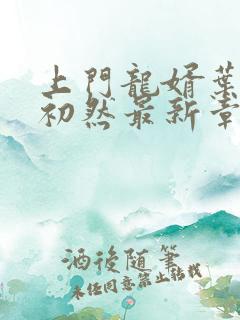 上門龍婿葉
初然最新章
酒後隨筆
未任同意禁止轉載